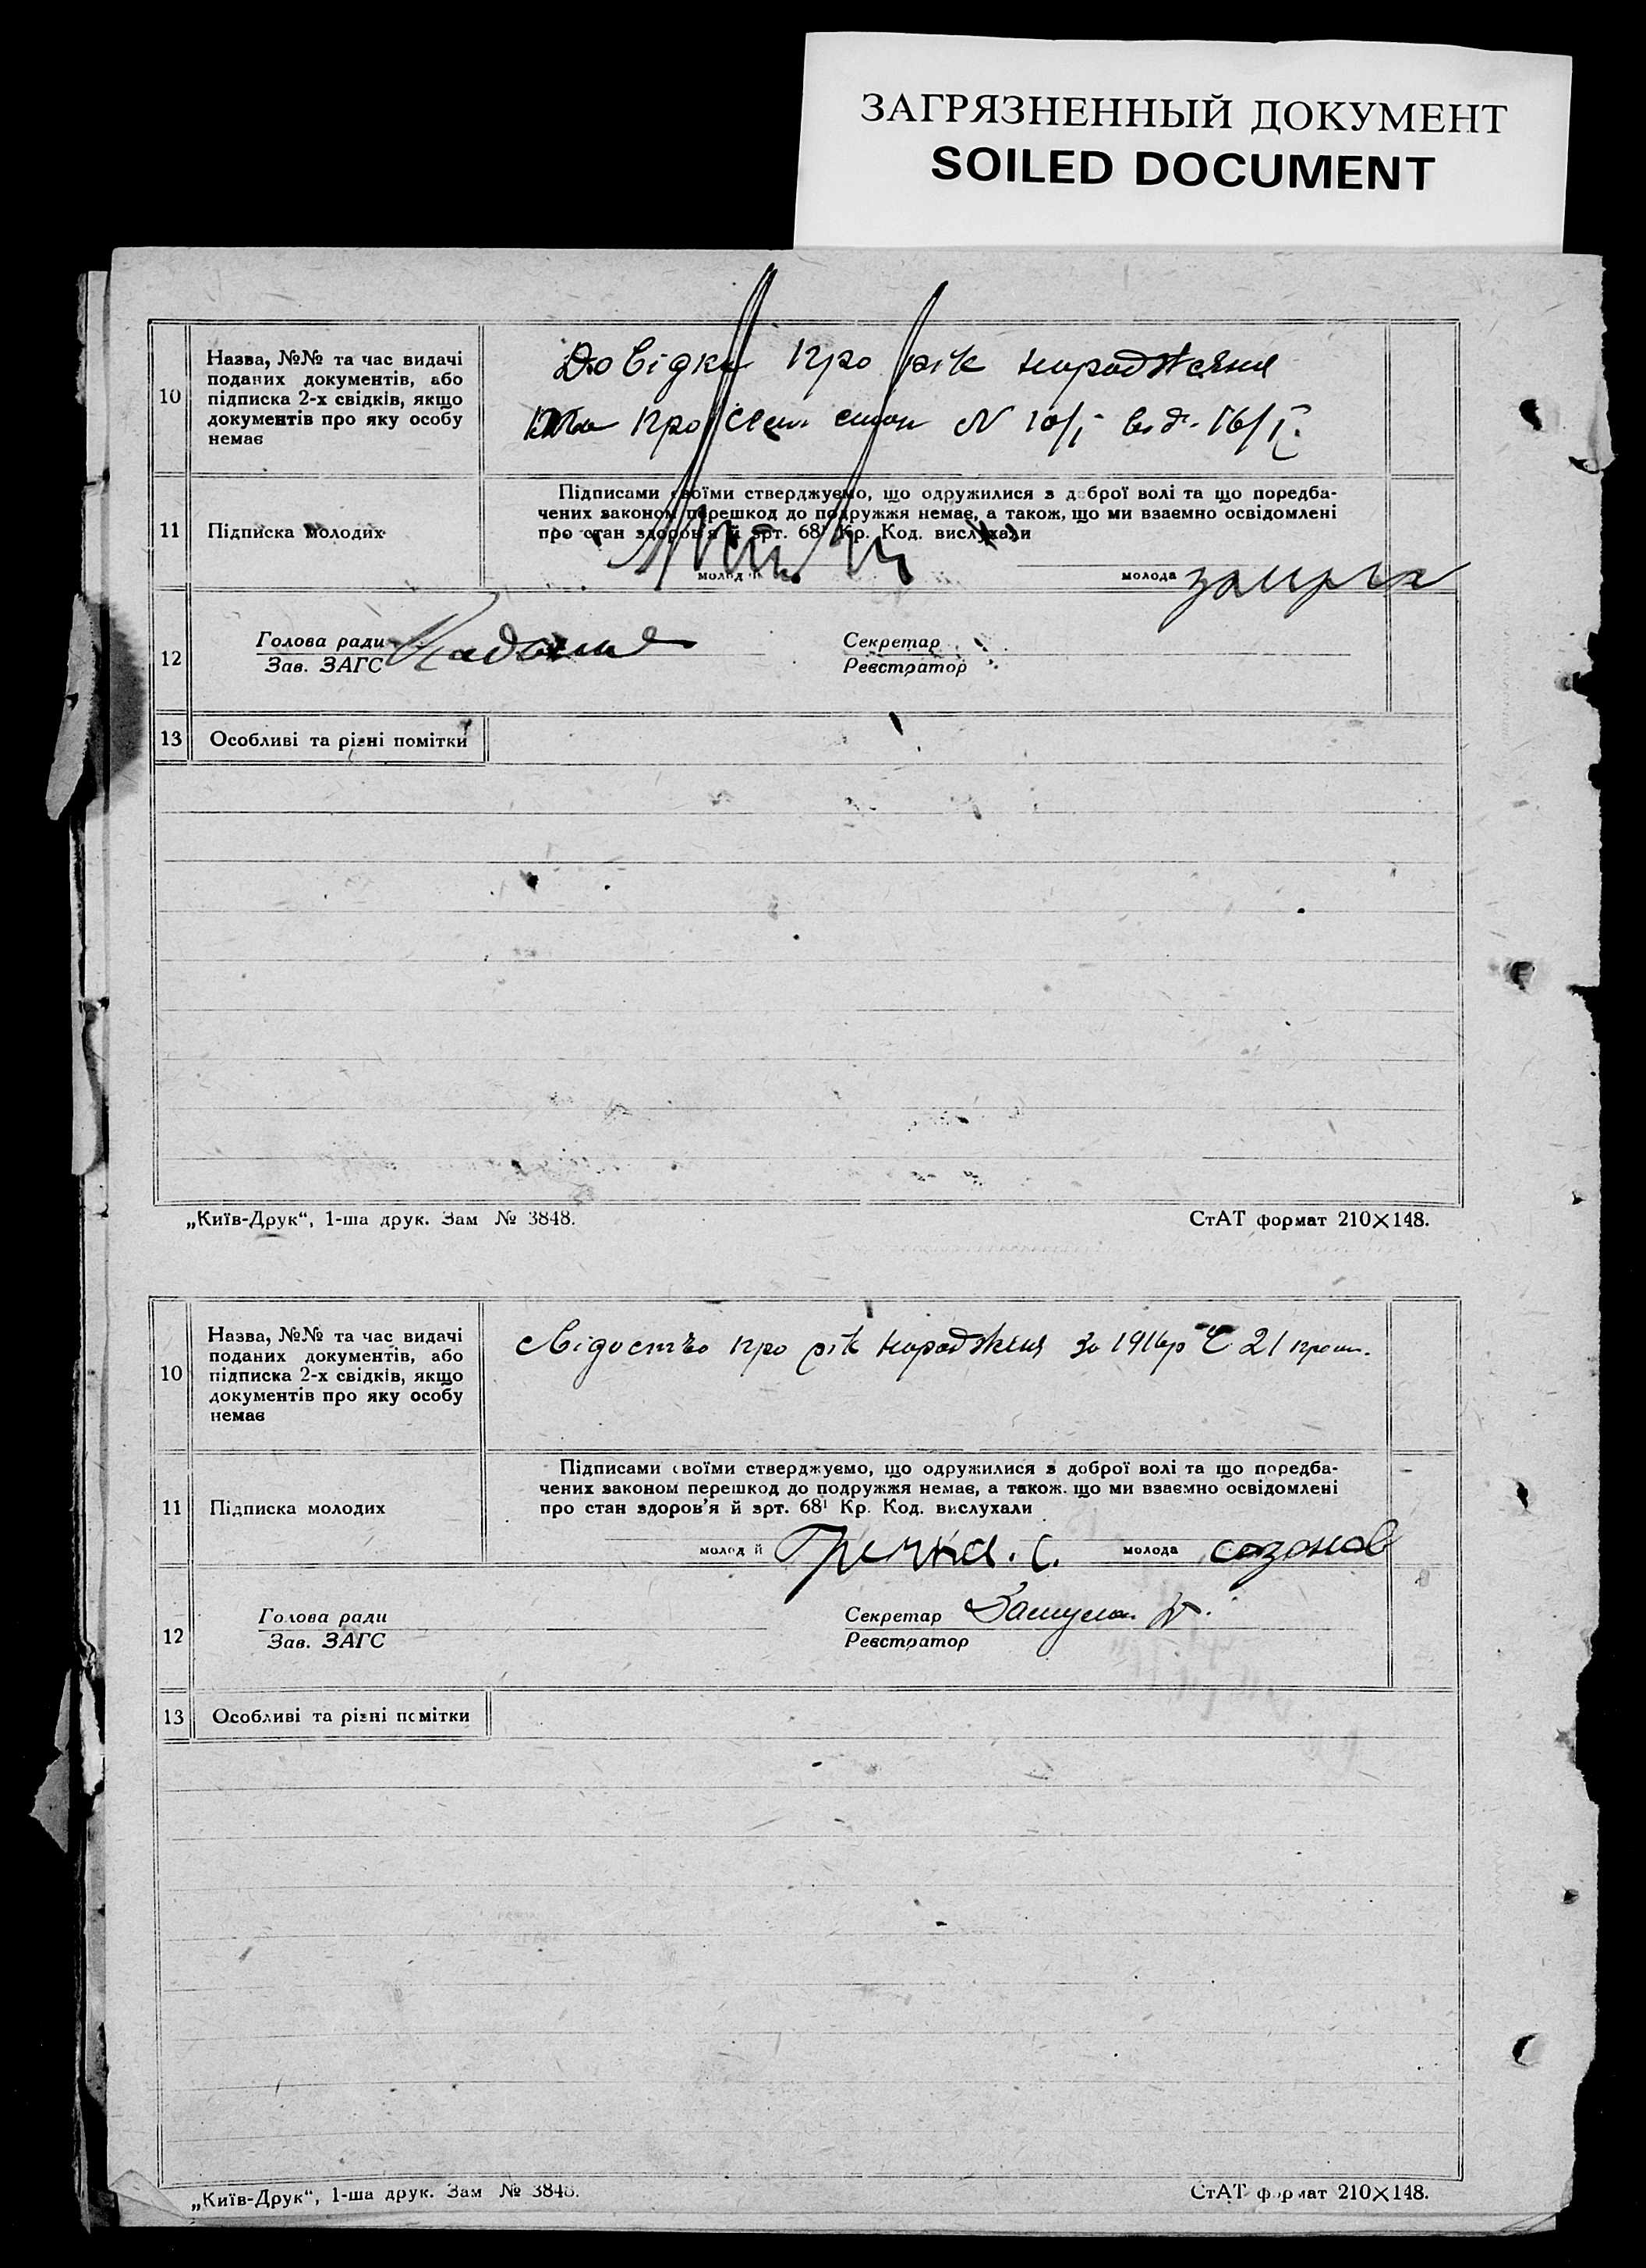 ЗАГРЯЗНЕННЫЙ ДОКУМЕНТ
SOILED DOCUMENT
10
Назва, №№ та час видачі
поданих документів, або
підписка 2-х свідків, якщо
документів про яку особу
немає
Довідка про рік народження
та про стан N 10/I від 16/I
11
Підписка молодих
Підписами своїми стверджуємо, що одружилися з доброї волі та що поредба-
чених законом перешкод до подружжя немає, а також, що ми взаємно освідомлені
про стан здоров'я й арт. 68¹ Кр. Код. вислухали
молодий
молода
12
Голова ради
Зав. ЗАГС
Секретар
Реєстратор
13
Особливі та різні помітки
„Київ-Друк“, 1-ша друк. Зам № 3848.
СтАТ формат 210×148.
10
Назва, №№ та час видачі
поданих документів, або
підписка 2-х свідків, якщо
документів про яку особу
немає
свідоство про рік народження за 1916р 21
11
Підписка молодих
Підписами своїми стверджуємо, що одружилися з доброї волі та що поредба-
чених законом перешкод до подружжя немає, а також. що ми взаємно освідомлені
про стан здоров'я й арт. 68¹ Кр. Код. вислухали
молодий Гречка. С. молода сазонов
12
Голова ради
Зав. ЗАГС
Секретар
Реєстратор
13
Особливі та різні помітки
„Київ-Друк“, 1-ша друк. Зам № 3848.
СтАТ формат 210×148.